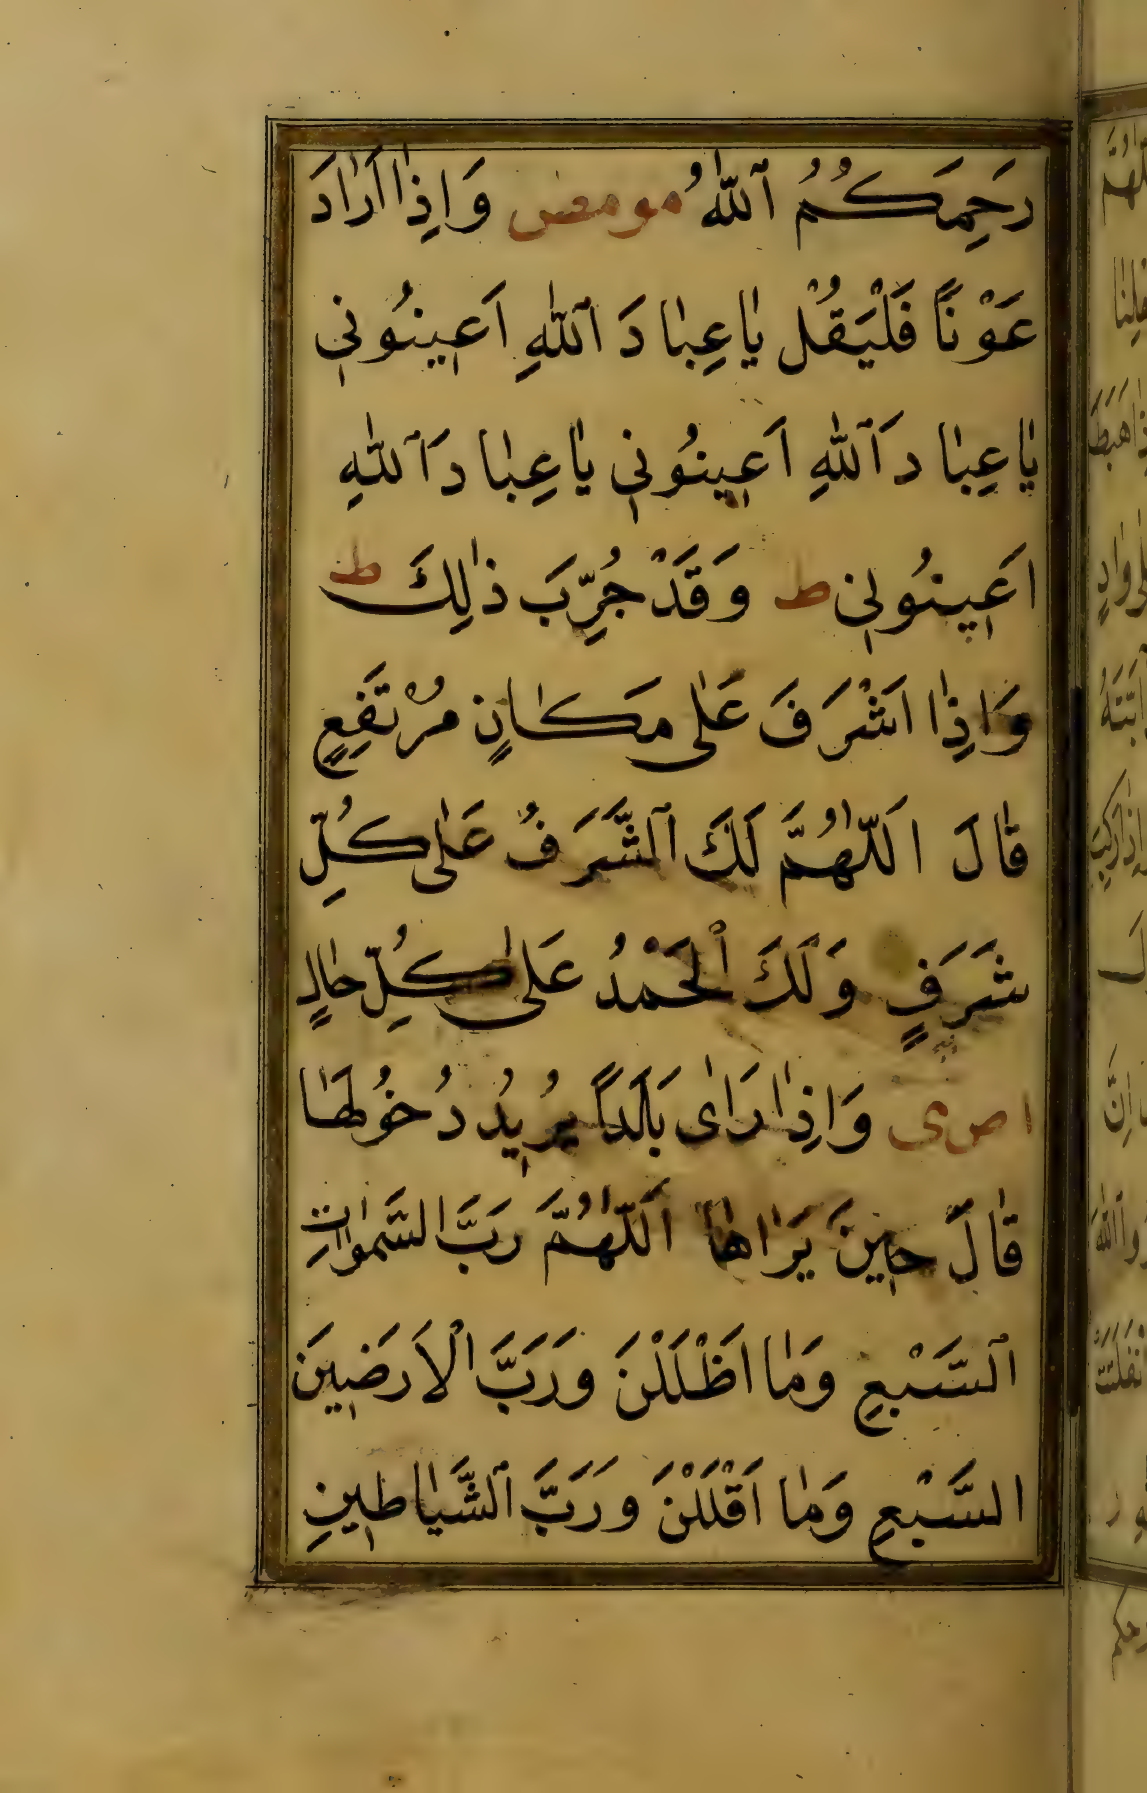 رَحِمَكُمُ ٱللّٰهُ مو مص وَاِذٰا اَرٰادَ
عَوْنًا فَلْيَقُلْ يٰاعِبٰادَ ٱللّٰهِ اَعٖينُونٖي
يٰاعِبٰادَ ٱللّٰهِ اَعٖينُونٖي يٰاعِبٰادَ ٱللّٰهِ
اَعٖينُونٖي ط وَقَدْ جُرِّبَ ذٰلِكَ ط
وَاِذٰا اَشْرَفَ عَلٰى مَكٰانٍ مُرْتَفِعٍ
قٰالَ اَللّٰهُمَّ لَكَ ٱلشَّرَفُ عَلٰى كُلِّ
شَرَفٍ وَلَكَ ٱلْحَمْدُ عَلٰى كُلِّ حٰالٍ
ا ص ى وَاِذٰا رَاٰى بَلَداً يُرٖيدُ دُخُولَهٰا
قٰالَ حٖينَ يَرٰاهٰا اَللّٰهُمَّ رَبَّ السَّمٰوٰاتِ
ٱلسَّبْعِ وَمٰا اَظْلَلْنَ وَرَبَّ الْاَرَضٖينَ
السَّبْعِ وَمٰا اَقْلَلْنَ وَرَبَّ ٱلشَّيٰاطٖينِ